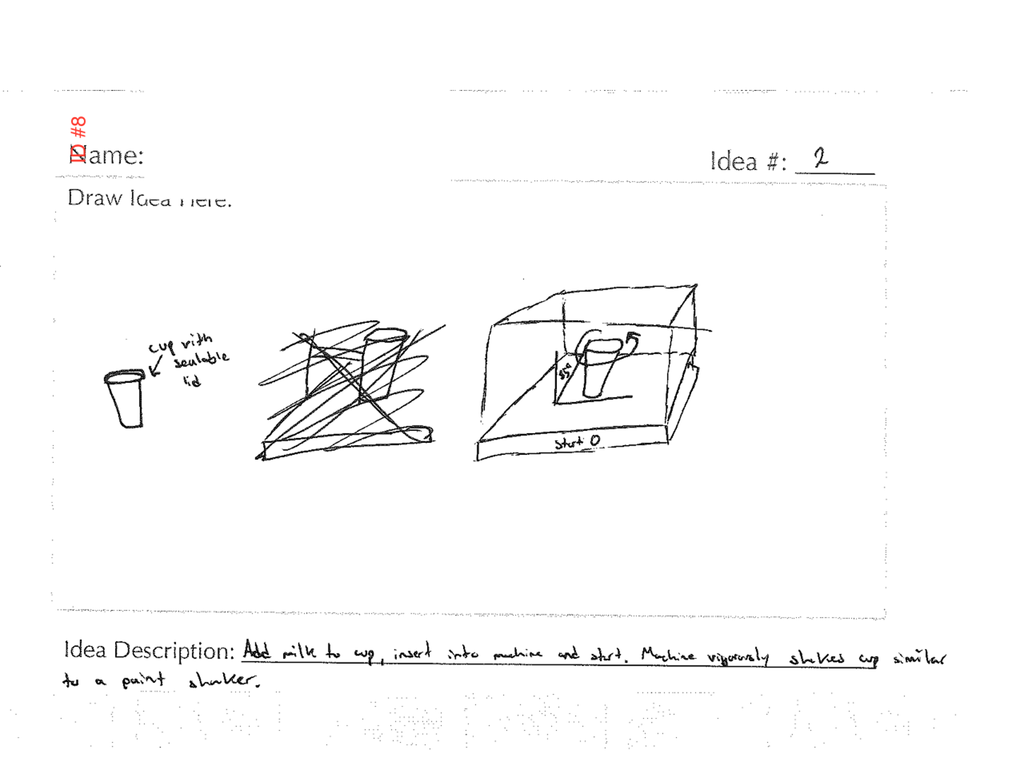 ID #8
Name:
Idea #: 2
Draw Idea Here:
cup with
sealable
lid
start O
Idea Description: Add milk to cup, insert into machine and start. Machine vigorously shakes cup similar
to a paint shaker.